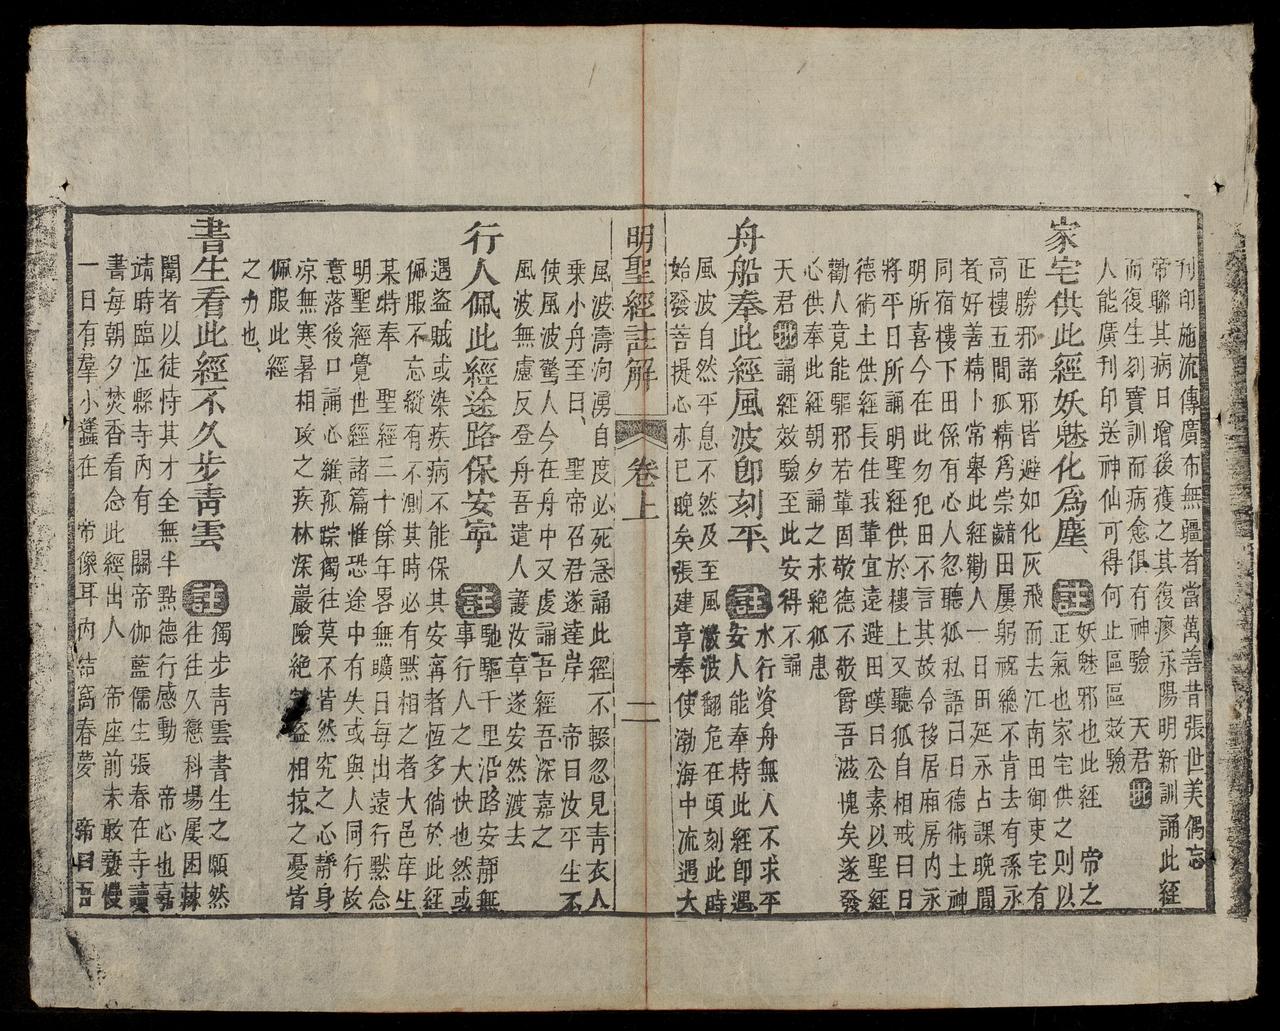 刊印施流傳廣布無疆者當萬善昔張世美偶忘
帝聯其病日增後獲之其復廖永陽明新訓誦此經
而復生刻寶訓而病愈俱有神驗　天君批
人能廣刊印送神仙可得何止區區效驗
家宅供此經妖魅化為塵註妖魅邪也此經　帝之
正氣也家宅供之則以
正勝邪諸邪皆避如化灰飛而去江南田御吏宅有
高樓五間狐精為祟囍田屢躬祝總不肯去有孫永
者好善精卜常舉此經勸人一日田延永占課晚間
同宿樓下田係有心人忽聽狐私語曰日德術士神
明所喜今在此勿犯田不言其故令移居廂房內永
將平日所誦明聖經供於樓上又聽狐自相戒曰日
德術士供經長住我輩宜遠避田嘆曰公素以聖經
勸人竟能驅邪若輩固敬德不敬爵吾滋愧矣遂發
心供奉此經朝夕誦之永絕狐患
天君批誦經效驗至此安得不誦
舟船奉此經風波即刻平註水行資舟無人不求平
安人能奉持此經即遇
風波自然平息不然及至風激波翻危在頃刻此時
始發菩提心亦已晚矣張建章奉使渤海中流遇大
明聖經註解　卷上　二
風波濤洶湧自度必死急誦此經不輟忽見青衣人
乘小舟至曰聖帝召君遂達岸　帝曰汝平生不
使風波驚人今在舟中又虔誦吾經吾深嘉之
風波無慮反登舟吾遣人護汝章遂安然渡去
行人佩此經途路保安寧註馳驅千里沿路安靜無
事行人之大快也然或
遇盜賊或染疾病不能保其安寗者恆多倘於此經
佩服不忘縱有不測其時必有默相之者大邑庠生
某特奉　聖經三十餘年畧無曠日每出遠行默念
明聖經覺世經諸篇惟恐途中有失或與人同行故
意落後口誦心維孤踪獨往莫不皆然究之心靜身
凉無寒暑相攻之疾林深巖險絕盜相掠之憂皆
佩服此經
之力也
書生看此經不久步青雲註獨步青雲書生之願然
往往久戀科場屢困棘
闈者以徒恃其才全無半點德行感動　帝心也嘉
靖時臨江縣寺內有　關帝伽藍儒生張春在寺讀
書每朝夕焚香看念此經出人　帝座前未敢褻慢
一日有羣小蠭在　帝像耳內結窩春夢　帝曰吾